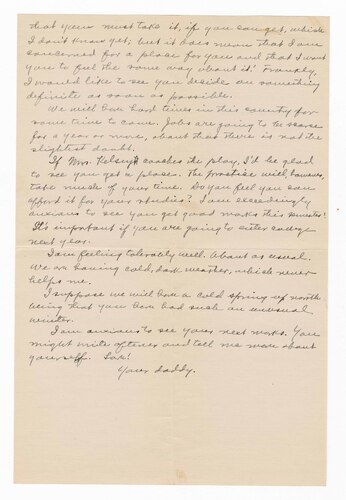 that you must take it, if you can get, which
I don't know yet; but it does mean that I am
concerned for a place for you and that I want
you to feel the same way about it. Frankly,
I would like to see you decide on something
definite as soon as possible.
We will have hard times in this country for
some time to come. Jobs are going to be scarce
for a year or more, about that there is not the
slightest doubt.
If Mrs. Kelsey coaches the play, I'd be glad
to see you get a place. The practice will however,
take much of your time. Do you feel you can
afford it for your studies? I am exceedingly
anxious to see you get good marks this semester!
It's important if you are going to enter
next year.
I am feeling tolerably well. About as usual.
We are having cold, dark weather, which never
helps me.
I suppose we will have a cold spring up north
being that you have had such an unusual
winter.
I am anxious to see your next marks. You
might write oftener and tell me more about
yourself. Love!
Your daddy.